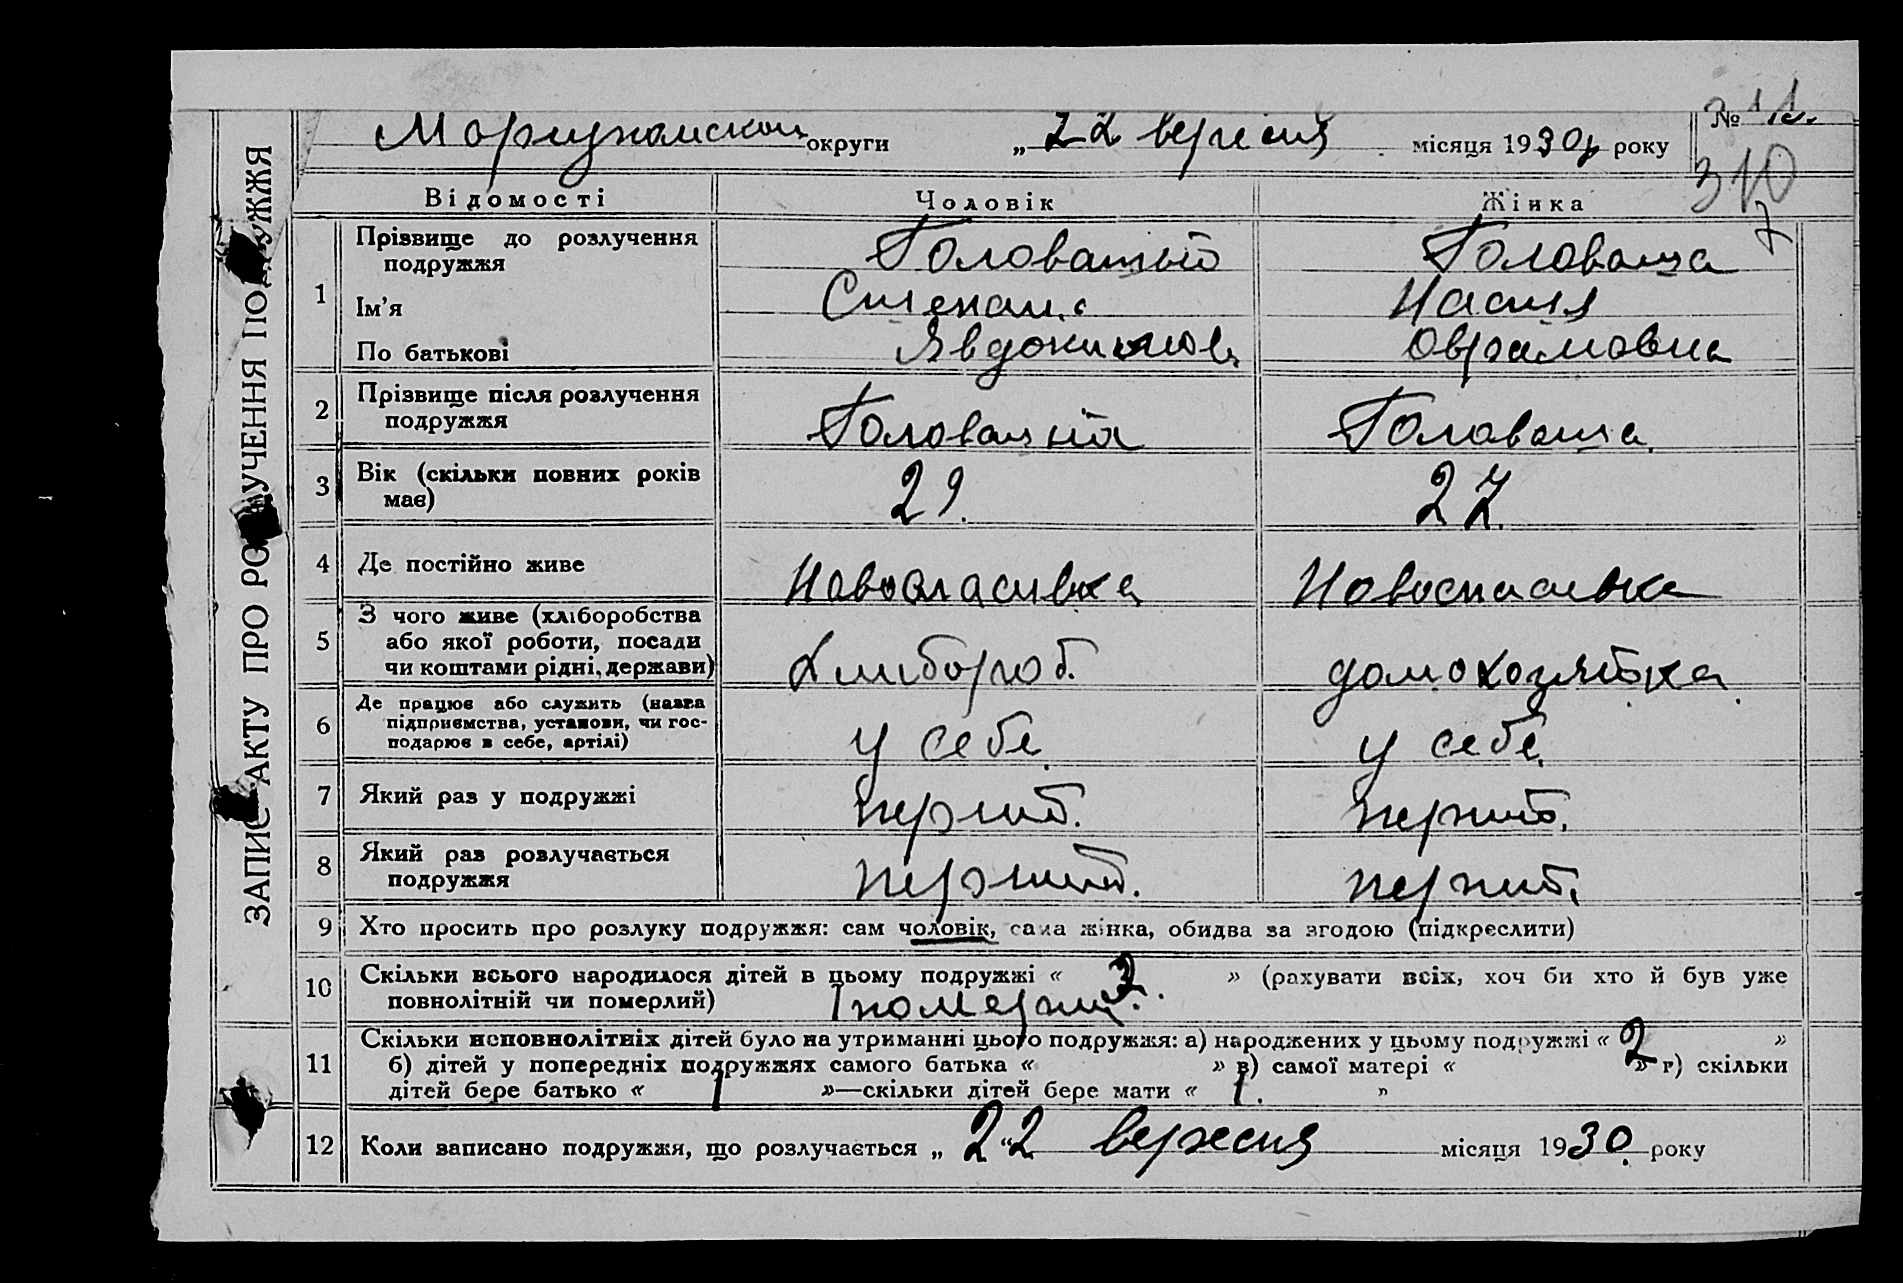 № 11.
округи „ 22 вересня місяця 1930 р року
310
7
ЗАПИС АКТУ ПРО РОЗЛУЧЕННЯ ПОДРУЖЖЯ
Відомості Чоловік Жінка
1 Прізвище до розлучення подружжя Головатый Головата
Ім'я Степан Настя
По батькові Явдокимов Оврамовна
2 Прізвище після розлучення подружжя Головатий Головата
3 Вік (скільки повних років має) 29. 27.
4 Де постійно живе Новоспасивка Новоспасивка
5 З чого живе (хліборобства або якої роботи, посади чи коштами рідні, держави) Хлибороб. домохозяйка
6 Де працює або служить (назва підприємства, установи, чи господарює в себе, артілі) у себе у себе
7 Який раз у подружжі перший. перший.
8 Який раз розлучається подружжя перший. перший.
9 Хто просить про розлуку подружжя: сам чоловік, сама жінка, обидва за згодою (підкреслити)
10 Скільки всього народилося дітей в цьому подружжі « 3 » (рахувати всіх, хоч би хто й був уже
повнолітній чи померлий) 1
11 Скільки неповнолітніх дітей було на утриманні цього подружжя: а) народжених у цьому подружжі « 2 »
б) дітей у попередніх подружжях самого батька « » в) самої матері « » г) скільки
дітей бере батько « 1 »—скільки дітей бере мати « 1. »
12 Коли записано подружжя, що розлучається „ 22 “ вересня місяця 1930. року